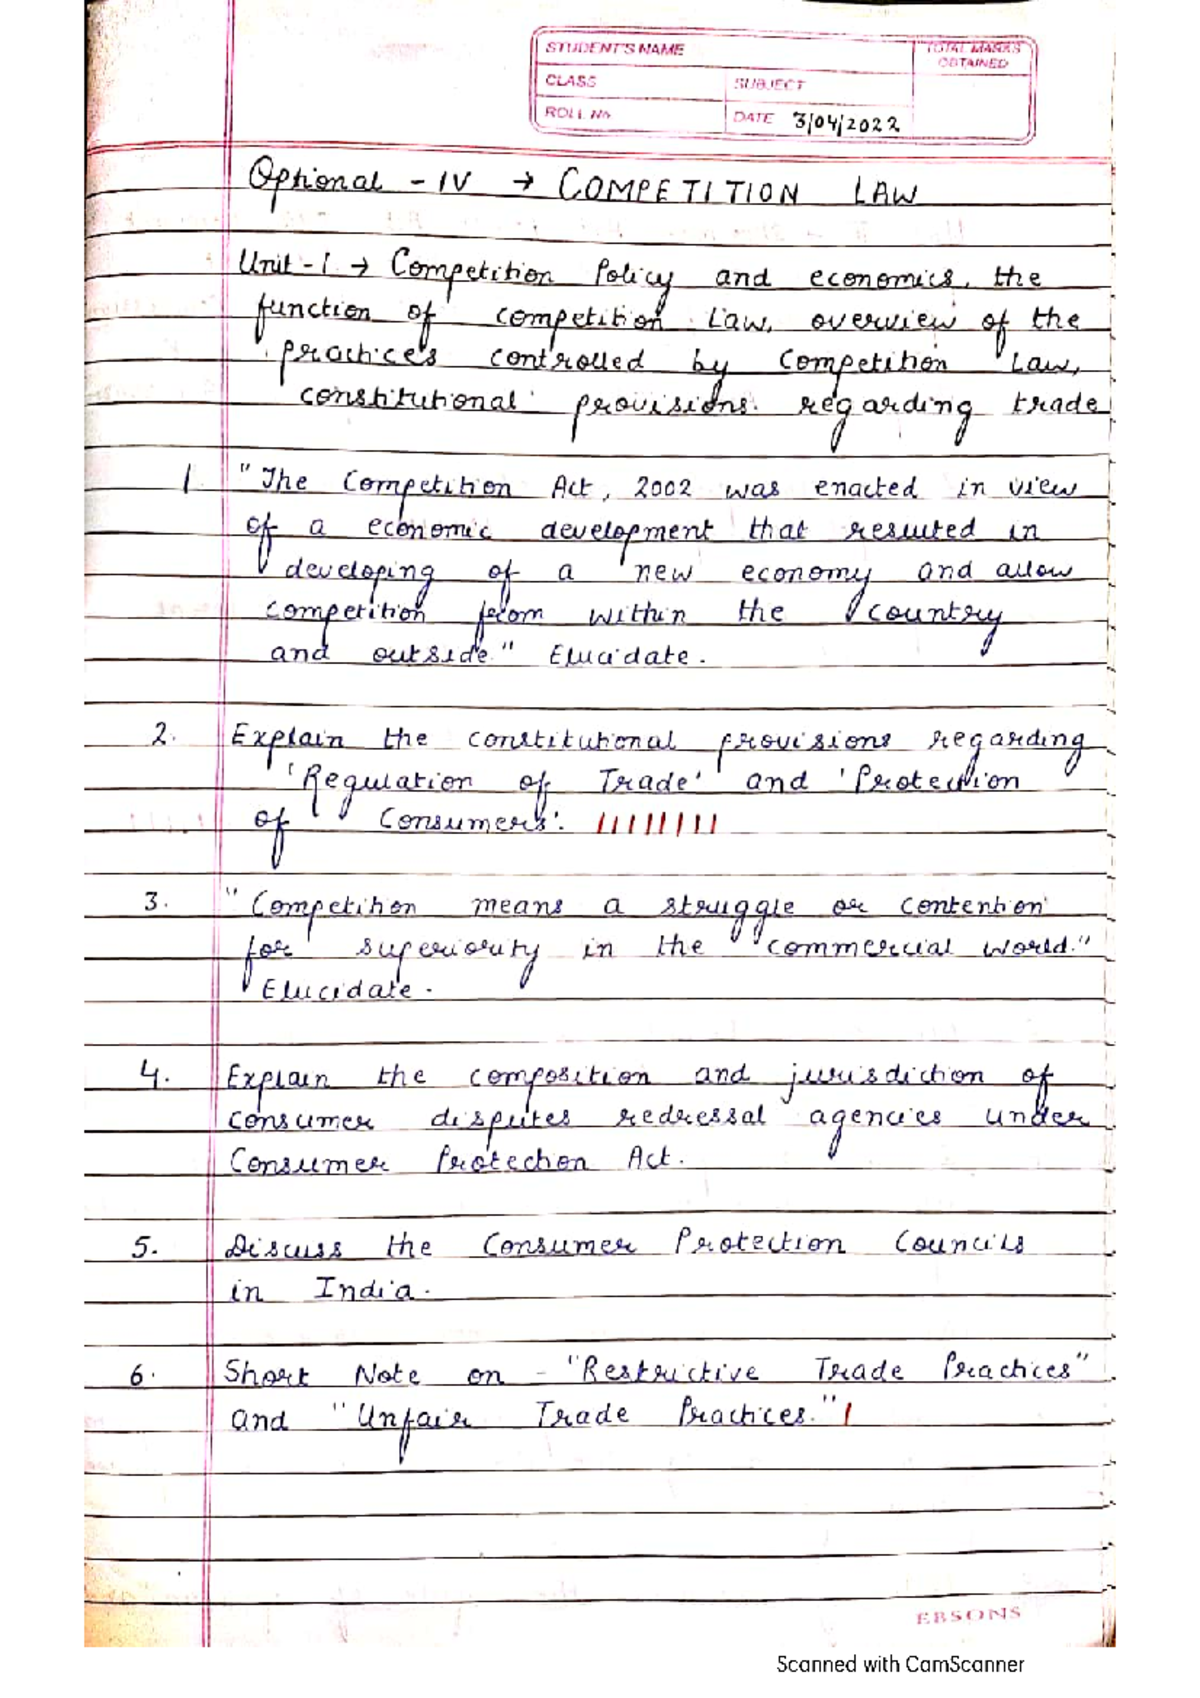 STUDENT'S NAME
TOTAL MARKS
OBTAINED
CLASS
SUBJECT
ROLL No
DATE 3/04/2022
Optional - IV → COMPETITION LAW
Unit - I → Competition Policy and economics, the
function of competition Law, overview of the
practices controlled by Competition Law,
constitutional provisions regarding trade
1. "The Competition Act, 2002 was enacted in view
of a economic development that resulted in
developing of a new economy and allow
competition from within the country
and outside." Elucidate.
2. Explain the constitutional provisions regarding
'Regulation of Trade' and 'Protection
of Consumers'. ||||||||
3. "Competition means a struggle or contention
for superiority in the commercial world."
Elucidate.
4. Explain the composition and jurisdiction of
consumer disputes redressal agencies under
Consumer Protection Act.
5. Discuss the Consumer Protection Councils
in India.
6. Short Note on - "Restrictive Trade Practices"
and "Unfair Trade Practices." |
EBSONS
Scanned with CamScanner